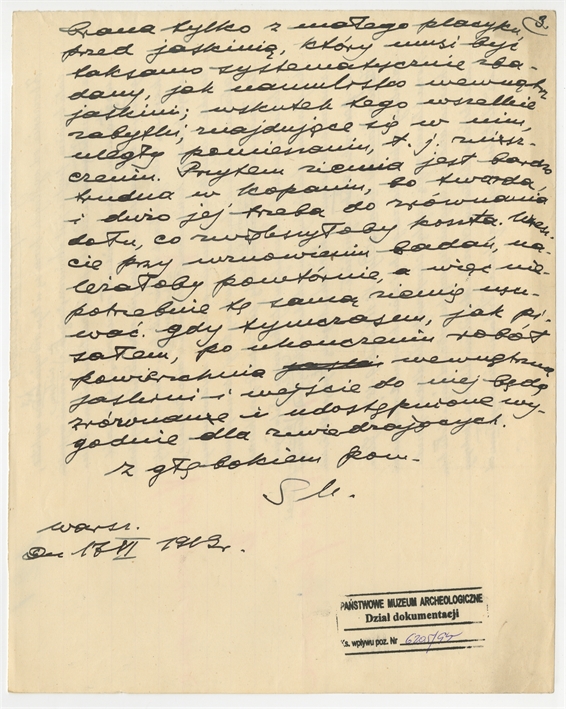 3.
brana tylko z małego placyku
przed jaskinią, który musi być
taksamo systematycznie zba-
dany, jak namulisko wewnątrz
jaskini; wskutek tego wszelkie
zabytki, znajdujące się w nim,
uległy pomieszaniu, t. j. znisz-
czeniu. Przytem ziemia jest bardzo
trudna w kopaniu, bo twarda,
i dużo jej trzeba do zrównania
dołu, co zwiększyłoby koszta.
cie przy wznowieniu badań, na-
leżałoby powtórnie, a więc nie-
potrzebnie tę samą ziemię usu-
wać. gdy tymczasem, jak pi-
sałem, po ukończeniu robót
powierzchnia wewnętrzna
jaskini i wejście do niej będą
zrównane i udostępnione wy-
godnie dla zwiedzających.
z głębokiem pow.
Warsz.
Dn 17 VI 1919r.
PAŃSTWOWE MUZEUM ARCHEOLOGICZNE
Dział dokumentacji
Ks. wpływu poz. Nr